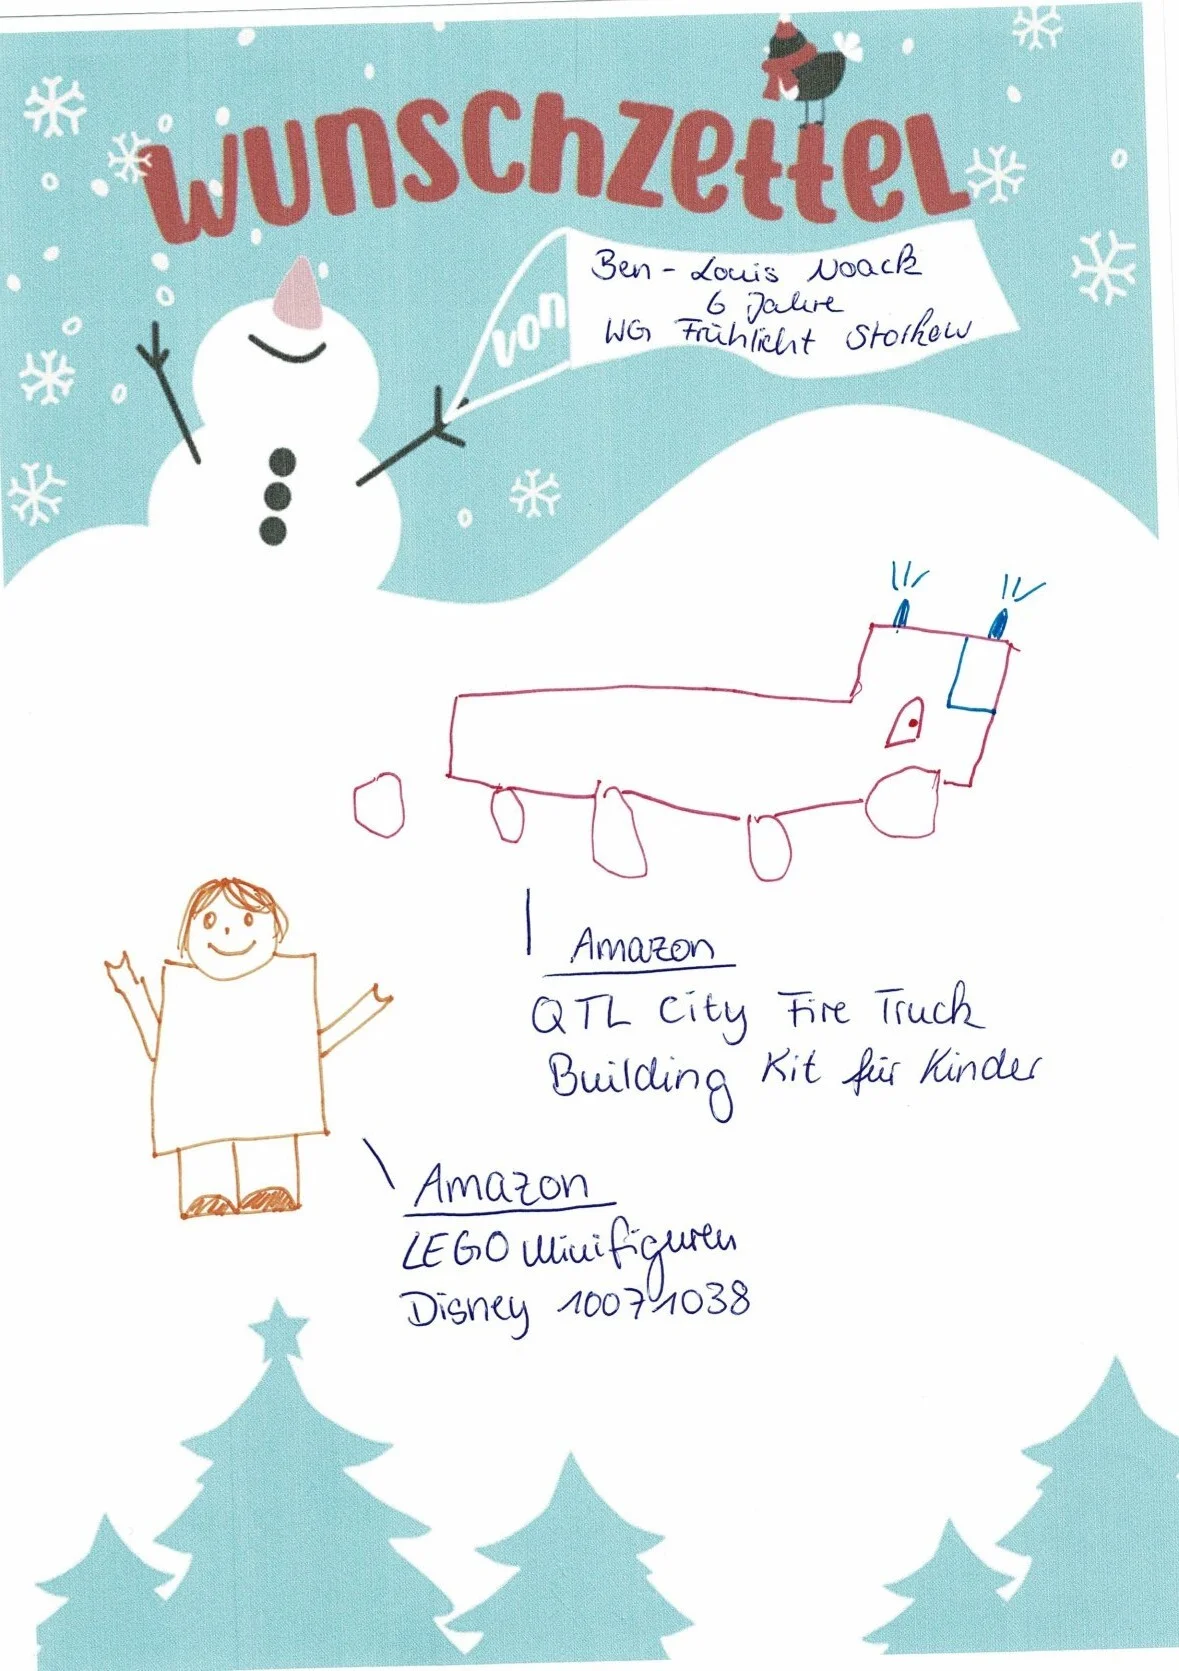 WUNSCHZETTEL
von
Ben-Louis Noack
6 Jahre
WG Frühlicht Storkow
Amazon
QTL City Fire Truck
Building Kit für Kinder
Amazon
LEGO Minifiguren
Disney 10071038